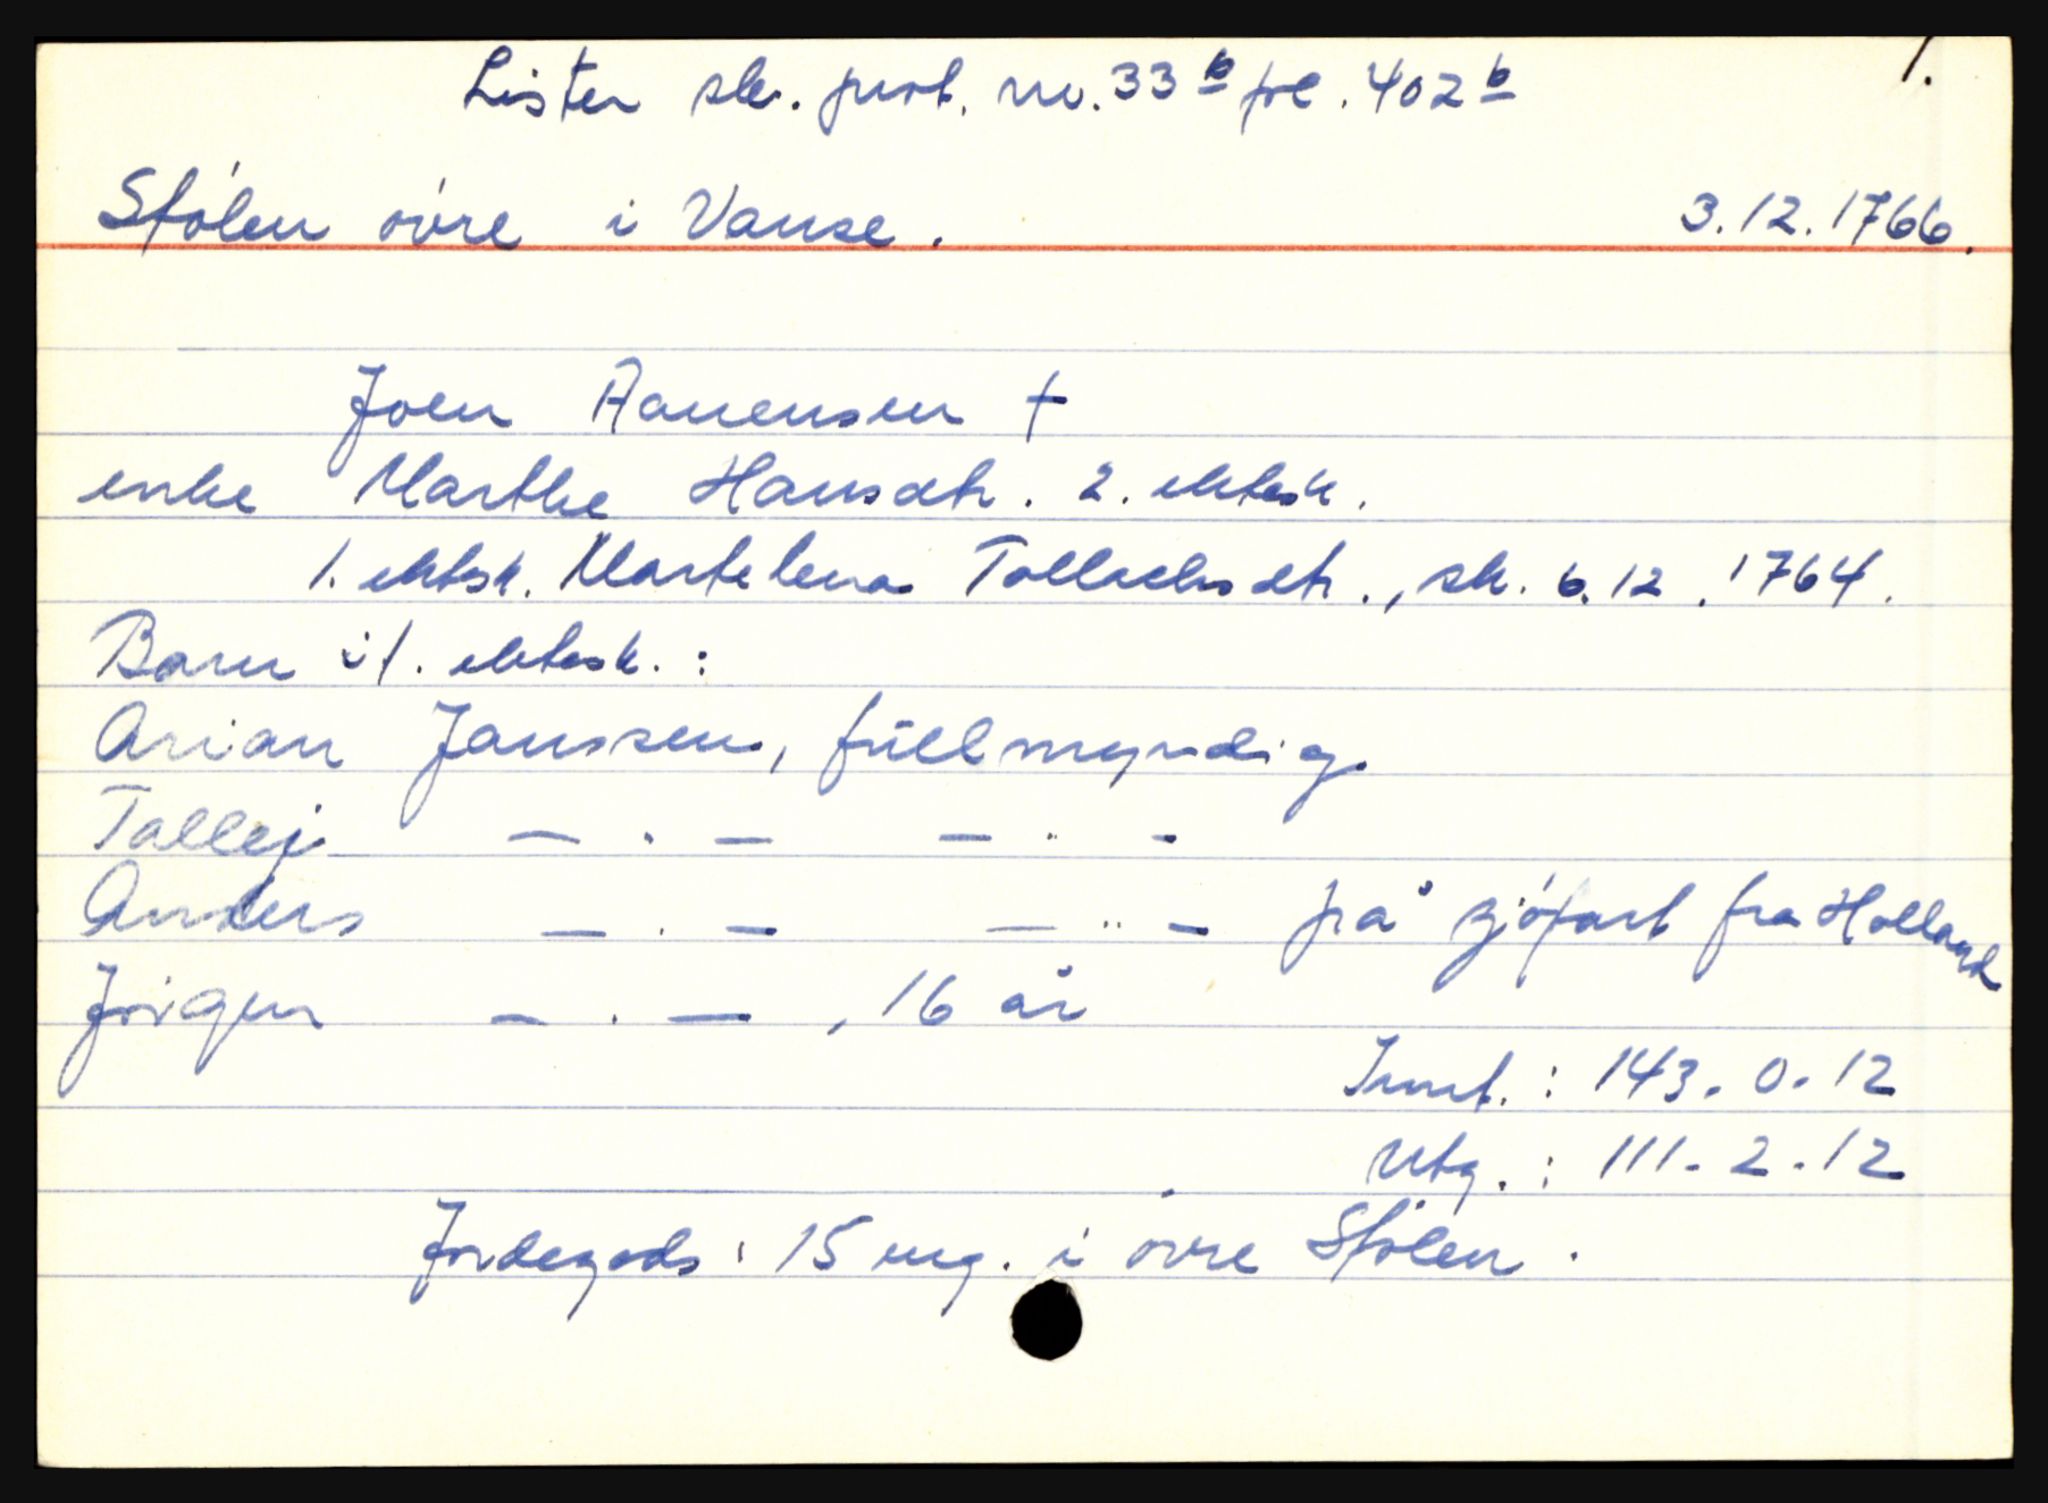 1.
Lister sk. prot. nr. 33 b fol. 402 b
Stölen övre i Vanse. 3.12.1766.
Joen Aanensen †
enke Marthe Hansdtr. 2. ektesk.
1. ektesk. Martelena Tollachsdtr., sk. 6.12.1764.
Barn i 1. ektesk. :
Arian Janssen, fullmyndig
Tallej — . — — .. -
Anders — . — — .. — på sjöfart fra Holland
Jörgen — . — , 16 år
Innt. : 143. 0. 12
Utg. : 111. 2. 12
Jordegods : 15 mg. i övre Stölen.